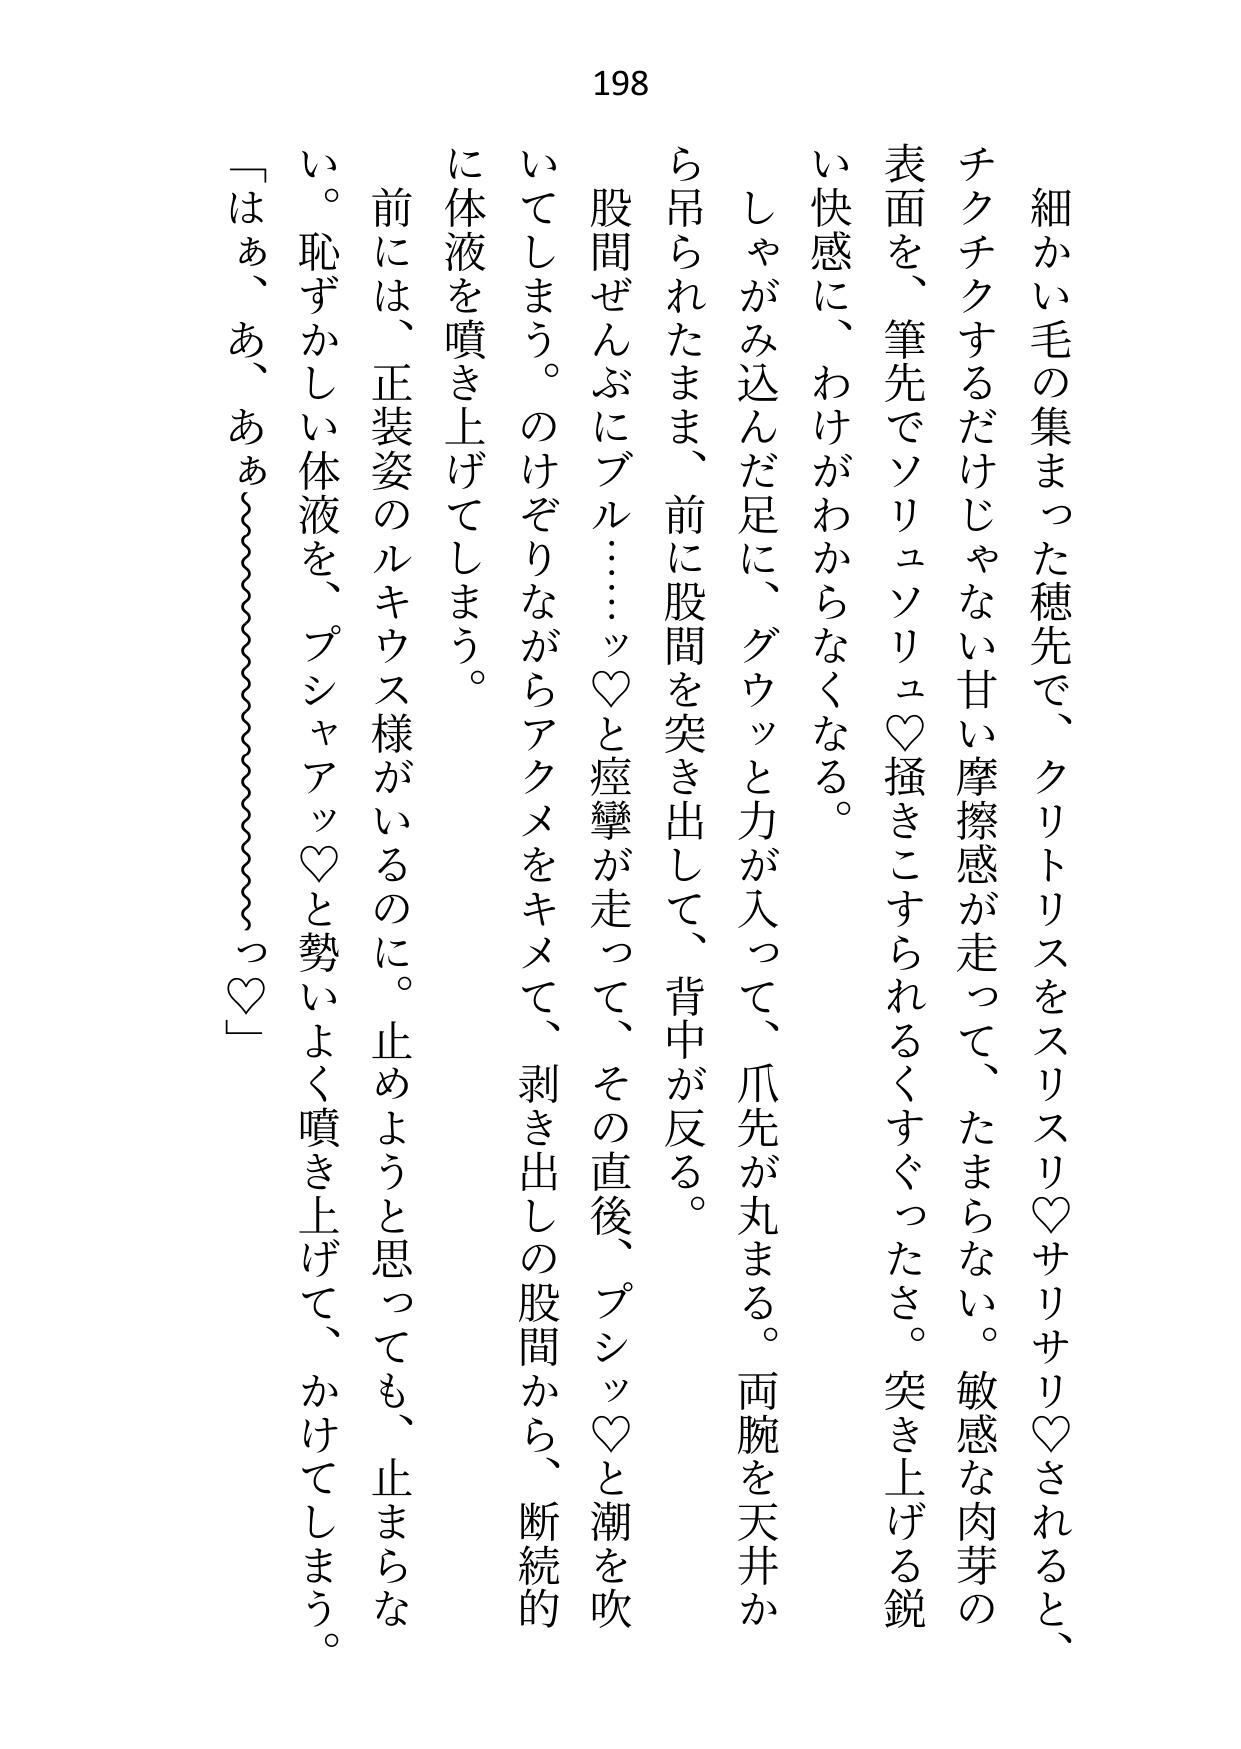 198
　細かい毛の集まった穂先で、クリトリスをスリスリ♡サリサリ♡されると、
チクチクするだけじゃない甘い摩擦感が走って、たまらない。敏感な肉芽の
表面を、筆先でソリュソリュ♡掻きこすられるくすぐったさ。突き上げる鋭
い快感に、わけがわからなくなる。
　しゃがみ込んだ足に、グウッと力が入って、爪先が丸まる。両腕を天井か
ら吊られたまま、前に股間を突き出して、背中が反る。
　股間ぜんぶにブル……ッ♡と痙攣が走って、その直後、プシッ♡と潮を吹
いてしまう。のけぞりながらアクメをキメて、剥き出しの股間から、断続的
に体液を噴き上げてしまう。
　前には、正装姿のルキウス様がいるのに。止めようと思っても、止まらな
い。恥ずかしい体液を、プシャアッ♡と勢いよく噴き上げて、かけてしまう。
「はぁ、あ、あぁ～～～～～～～～～～っ♡」